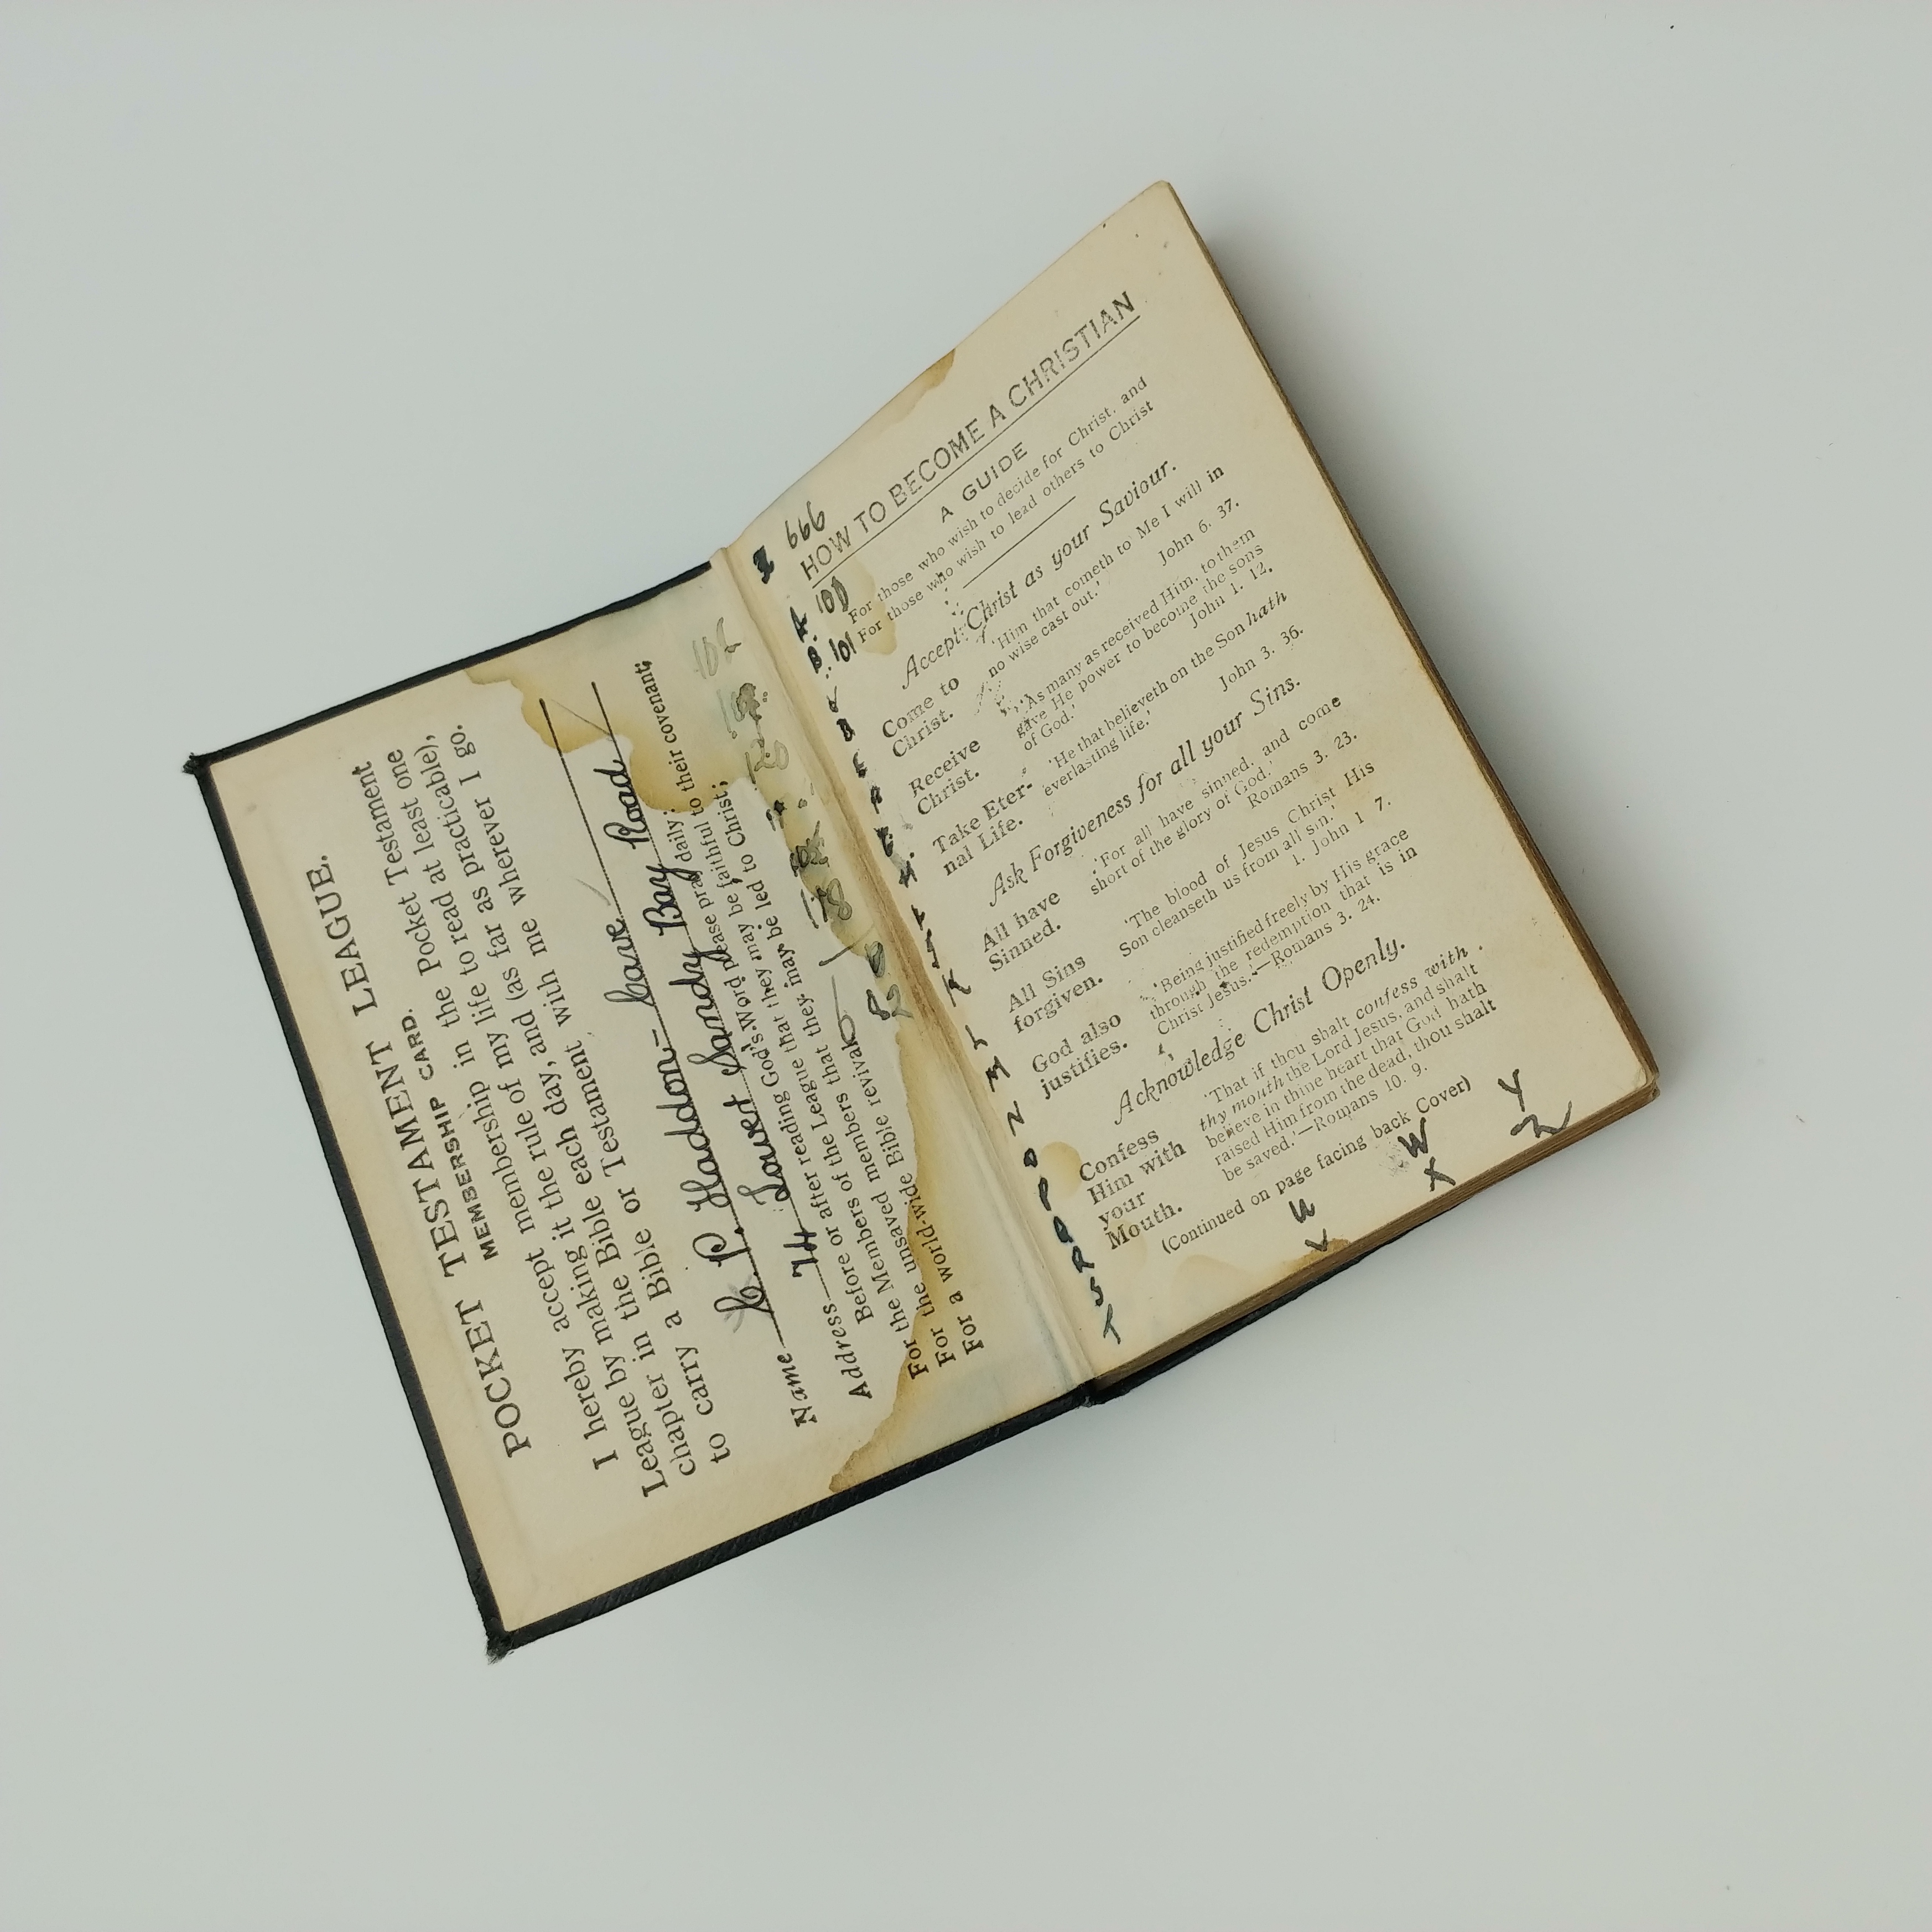 POCKET TESTAMENT LEAGUE.
MEMBERSHIP CARD.
I hereby accept membership in the Pocket Testament
League by making it the rule of my life to read at least one
chapter in the Bible each day, and (as far as practicable),
to carry a Bible or Testament with me wherever I go.
Name
Address 74 Lower Sandy Bay Road.
Before or after reading God's Word please pray daily:
For the Members of the League that they may be faithful to their covenant;
For the unsaved members that they may be led to Christ;
For a world-wide Bible revival
666
101
101
HOW TO BECOME A CHRISTIAN
A GUIDE
For those who wish to decide for Christ, and
For those who wish to lead others to Christ
Accept Christ as your Saviour.
Come to Christ. 'Him that cometh to Me I will in
no wise cast out.' John 6. 37.
Receive Christ. 'As many as received Him, to them
gave He power to become the sons
of God.' John 1. 12.
Take Eter-
nal Life. 'He that believeth on the Son hath
everlasting life.' John 3. 36.
Ask Forgiveness for all your Sins.
All have
Sinned. 'For all have sinned, and come
short of the glory of God.' Romans 3. 23.
All Sins
forgiven. 'The blood of Jesus Christ His
Son cleanseth us from all sin.'
1. John 1 7.
God also
justifies. 'Being justified freely by His grace
through the redemption that is in
Christ Jesus.'—Romans 3. 24.
Acknowledge Christ Openly.
Confess
Him with
your
Mouth. 'That if thou shalt confess with
thy mouth the Lord Jesus, and shalt
believe in thine heart that God hath
raised Him from the dead, thou shalt
be saved.'—Romans 10. 9.
(Continued on page facing back Cover)
W
X
Y
Z